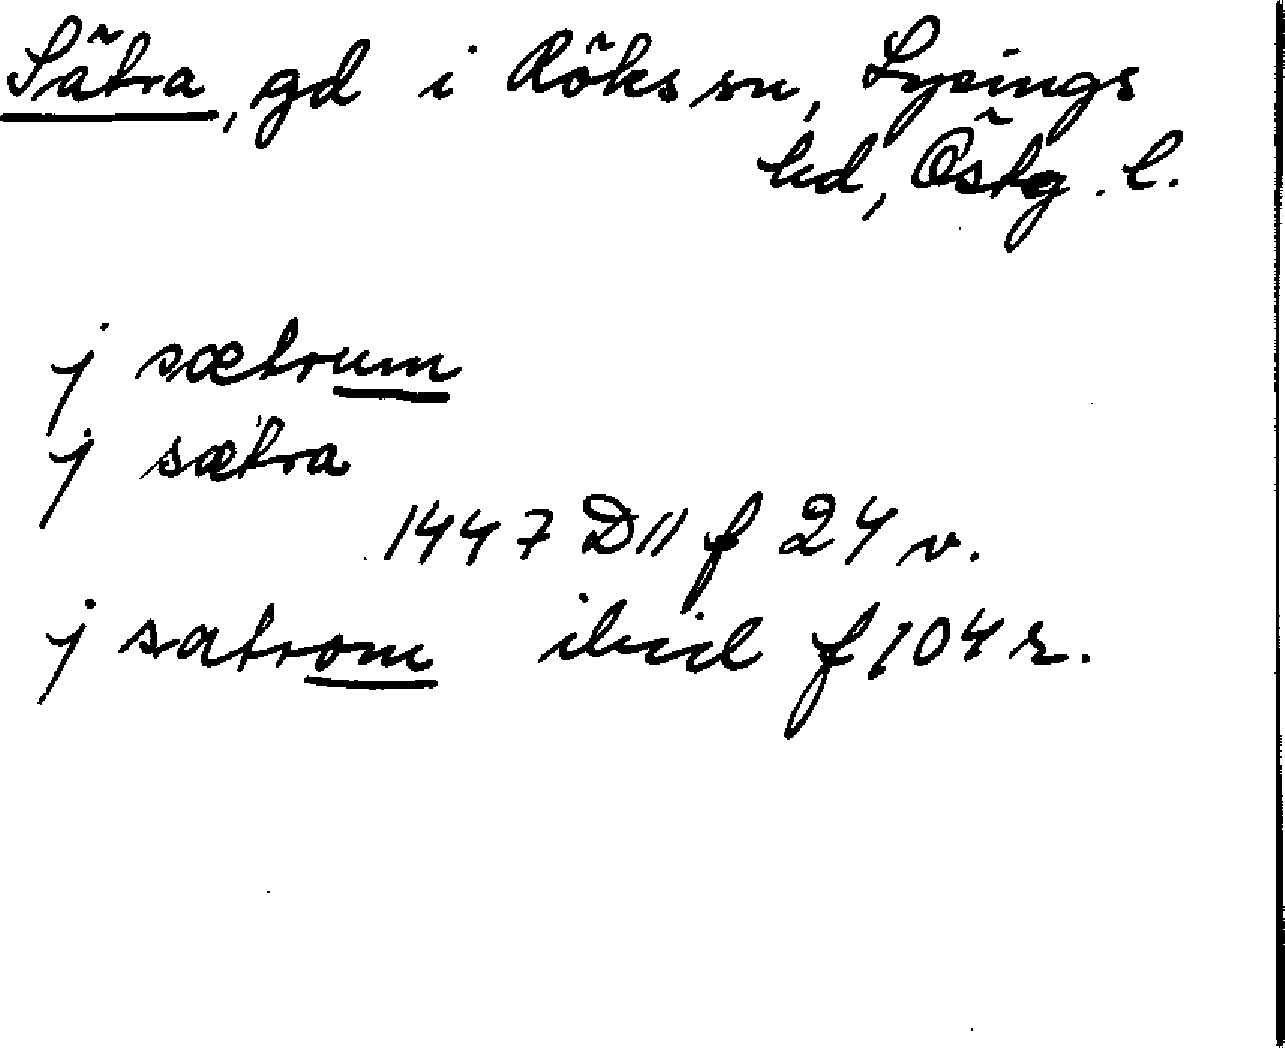 Sätra, gd i Röks sn, Lysings
hd, Östg. l.
j sætrum
j sætra
1447 D11 f 24 v.
j satrom ibid f 104 r.